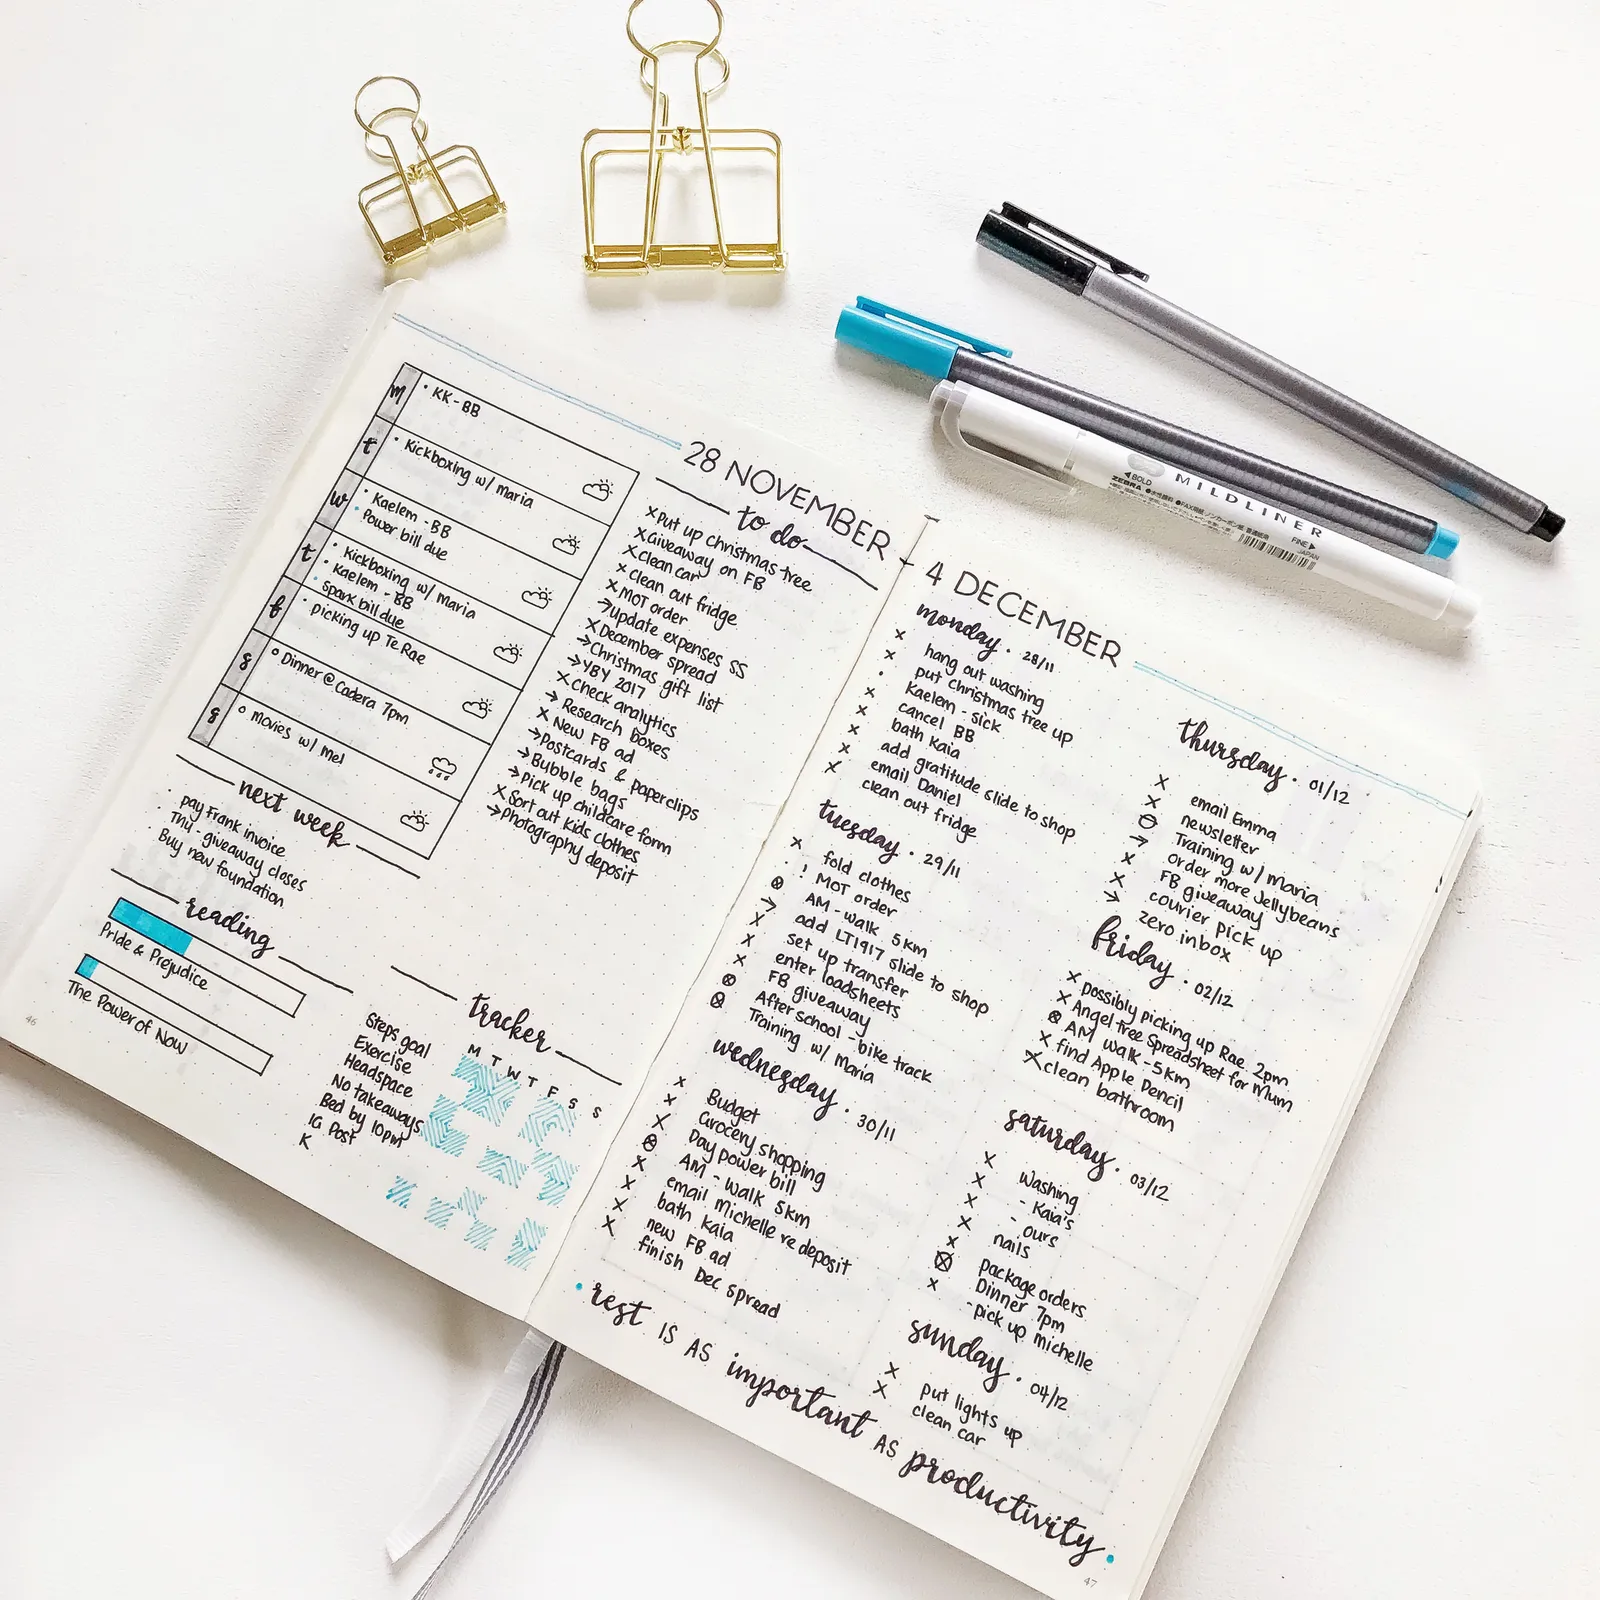 28 NOVEMBER - 4 DECEMBER
m
• KK - BB
t
• Kickboxing w/ maria
w
• Kaelem - BB
• Power bill due
t
• Kickboxing w/ maria
• Kaelem - BB
• Spark bill due
f
• picking up Te Rae
s
o Dinner @ Cadera 7pm
s
o movies w/ mel
next week
• pay Frank invoice
• THU - giveaway closes
• Buy new foundation
reading
Pride & Prejudice
The Power of Now
46
to do
x Put up christmas tree
x Giveaway on FB
x Clean car
x Clean out fridge
x MOT order
→ update expenses SS
x December spread
→ Christmas gift list
→ YBY 2017
x Check analytics
→ Research boxes
x New FB ad
→ Postcards & paperclips
→ Bubble bags
→ Pick up childcare form
x Sort out kids clothes
→ Photography deposit
tracker
M T W T F S S
Steps goal
Exercise
Headspace
No takeaways
Bed by 10pm
IG Post
K
monday • 28/11
x hang out washing
x put Christmas tree up
• Kaelem - sick
x cancel BB
x bath Kaia
x add gratitude slide to shop
x email Daniel
x clean out fridge
tuesday • 29/11
x fold clothes
• ! MOT order
⊗ AM - walk 5km
→ add LT1917 slide to shop
x set up transfer
x enter loadsheets
x FB giveaway
⊗ After school - bike track
⊗ Training w/ Maria
wednesday • 30/11
x Budget
x Grocery shopping
x Day power bill
⊗ AM - walk 5km
x email michelle re deposit
x bath Kaia
x new FB ad
x finish Dec spread
thursday • 01/12
x email Emma
x newsletter
⊖ Training w/ maria
→ order more Jellybeans
x FB giveaway
x courier pick up
→ zero inbox
friday • 02/12
x possibly picking up Rae 2pm
x Angel tree Spreadsheet for Mum
⊗ AM walk - 5km
x find Apple Pencil
x clean bathroom
saturday • 03/12
x washing
x - Kaia's
x - ours
x nails
x package orders
⊗ Dinner 7pm
x - pick up michelle
sunday • 04/12
x put lights up
x clean car
• rest IS AS important AS productivity •
47
MILDLINER
◀ BOLD
ZEBRA
FINE ▶
JAPAN